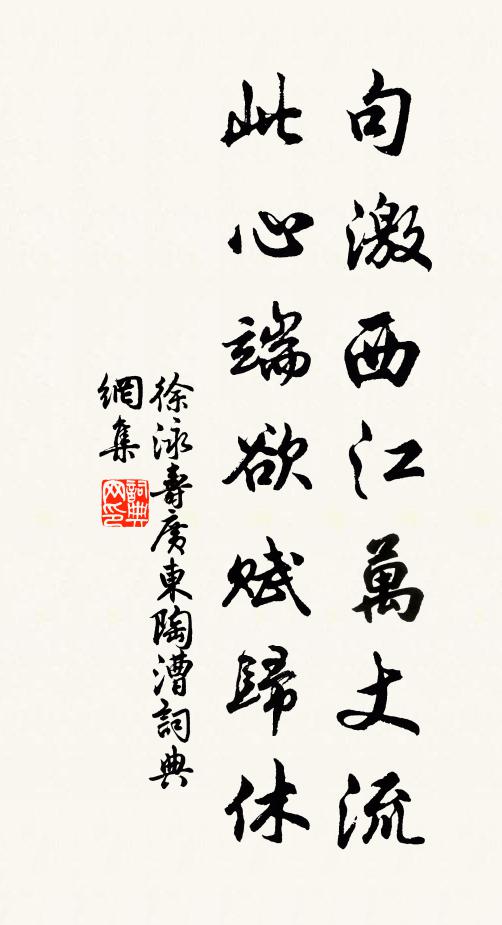 句激西江萬丈流
此心端欲賦歸休
徐泳壽廣東陶漕詞典
網集
詞典網印